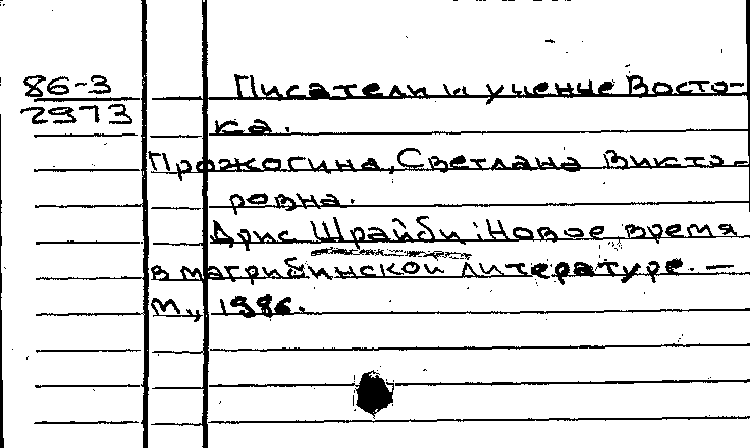 86-3 Писатели и ученые Восто-
2973 ка.
Прожогина, Светлана Викто-
ровна.
Дрис Шрайби: Новое время
в магрибинской литературе. —
М., 1986.